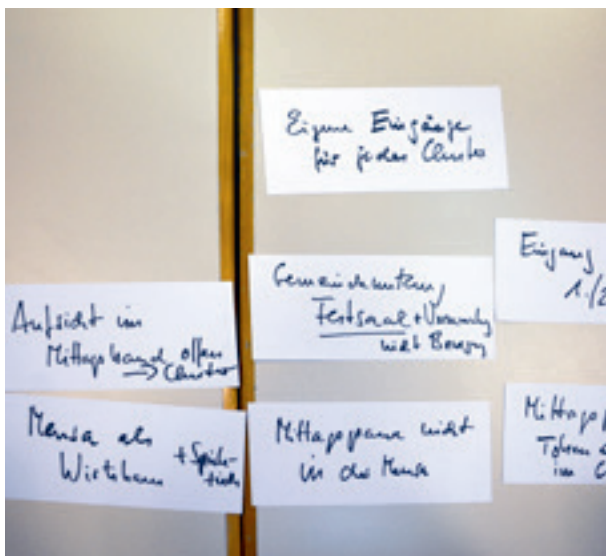 Eigene Eingänge
für jedes Cluster
Eingang
1./2
Gemeindenutzung
Festsaal +
nicht
Aufsicht im
Mittagsband offen
→ Cluster
Mensa als
Wirtshaus
+ Spiel-
tisch
Mittagspause nicht
in der Mensa
Mittagsp
im C